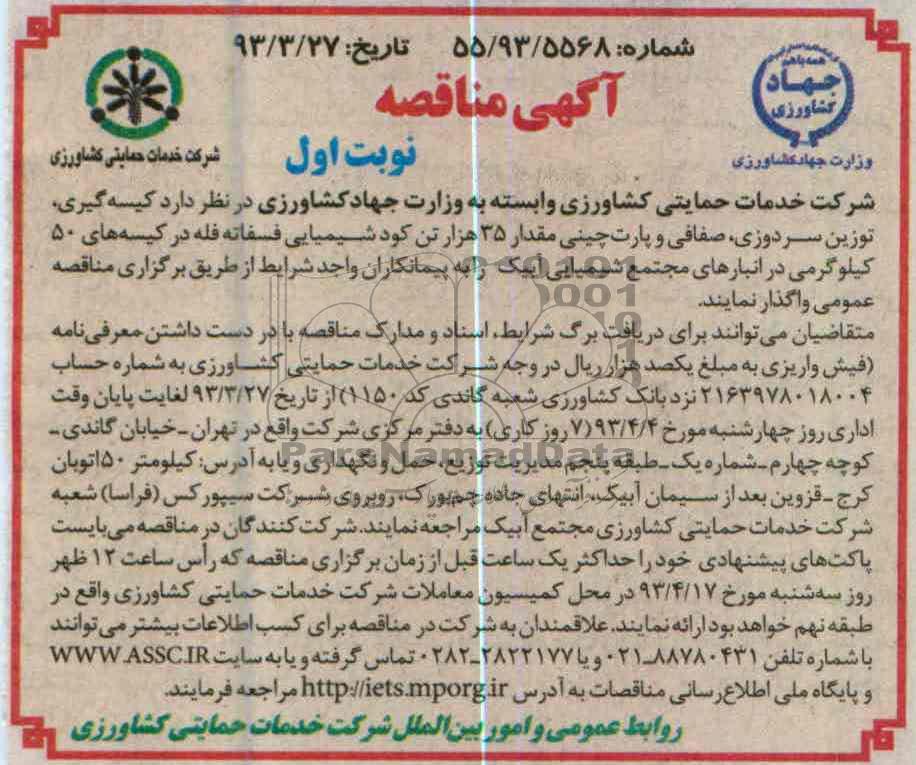 شماره: ۵۵/۹۳/۵۵۶۸ تاریخ: ۹۳/۳/۲۷
همه با هم
جهاد
کشاورزی
وزارت جهاد کشاورزی
شرکت خدمات حمایتی کشاورزی
آگهی مناقصه
نوبت اول
شرکت خدمات حمایتی کشاورزی وابسته به وزارت جهاد کشاورزی در نظر دارد کیسه‌گیری،
توزین سردوزی، صفافی و پارت‌چینی مقدار ۳۵ هزار تن کود شیمیایی فسفاته فله در کیسه‌های ۵۰
کیلوگرمی در انبارهای مجتمع شیمیایی آبیک را به پیمانکاران واجد شرایط از طریق برگزاری مناقصه
عمومی واگذار نمایند.
متقاضیان می‌توانند برای دریافت برگ شرایط، اسناد و مدارک مناقصه با در دست داشتن معرفی‌نامه
(فیش واریزی به مبلغ یکصد هزار ریال در وجه شرکت خدمات حمایتی کشاورزی به شماره حساب
۲۱۶۳۹۷۸۰۱۸۰۰۴ نزد بانک کشاورزی شعبه گاندی کد ۱۱۵۰) از تاریخ ۹۳/۳/۲۷ لغایت پایان وقت
اداری روز چهارشنبه مورخ ۹۳/۴/۴ (۷ روز کاری) به دفتر مرکزی شرکت واقع در تهران ـ خیابان گاندی ـ
کوچه چهارم ـ شماره یک ـ طبقه پنجم مدیریت توزیع، حمل و نگهداری و یا به آدرس: کیلومتر ۵۰ اتوبان
کرج ـ قزوین بعد از سیمان آبیک، انتهای جاده چمبورک، روبروی شرکت سیپورکس (فراسا) شعبه
شرکت خدمات حمایتی کشاورزی مجتمع آبیک مراجعه نمایند. شرکت کنندگان در مناقصه می‌بایست
پاکت‌های پیشنهادی خود را حداکثر یک ساعت قبل از زمان برگزاری مناقصه که رأس ساعت ۱۲ ظهر
روز سه‌شنبه مورخ ۹۳/۴/۱۷ در محل کمیسیون معاملات شرکت خدمات حمایتی کشاورزی واقع در
طبقه نهم خواهد بود ارائه نمایند. علاقمندان به شرکت در مناقصه برای کسب اطلاعات بیشتر می‌توانند
با شماره تلفن ۸۸۷۸۰۴۳۱ـ۰۲۱ و یا ۲۸۲۲۱۷۷ـ۰۲۸۲ تماس گرفته و یا به سایت WWW.ASSC.IR
و پایگاه ملی اطلاع‌رسانی مناقصات به آدرس http://iets.mporg.ir مراجعه فرمایند.
روابط عمومی و امور بین‌الملل شرکت خدمات حمایتی کشاورزی
ParsNamadData